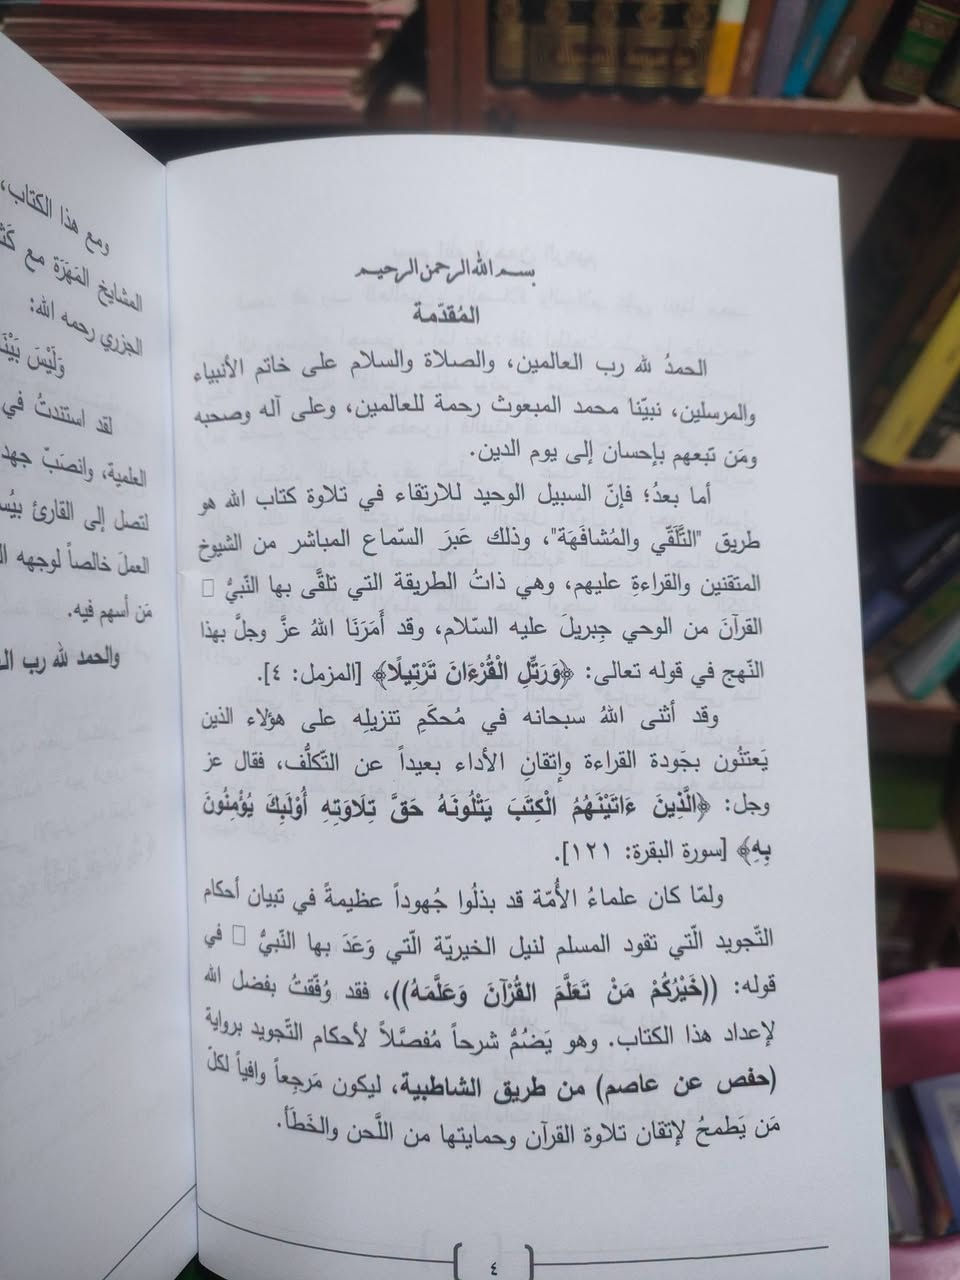 بسم الله الرحمن الرحيم
المُقدّمة
الحمدُ لله رب العالمين، والصلاة والسلام على خاتم الأنبياء
والمرسلين، نبيّنا محمد المبعوث رحمة للعالمين، وعلى آله وصحبه
ومَن تبعهم بإحسان إلى يوم الدين.
أما بعدُ؛ فإنّ السبيل الوحيد للارتقاء في تلاوة كتاب الله هو
طريق "التَّلَقِّي والمُشافَهَة"، وذلك عَبرَ السّماع المباشر من الشيوخ
المتقنين والقراءةِ عليهم، وهي ذاتُ الطريقة التي تلقَّى بها النَّبيُّ □
القرآنَ من الوحي جِبريلَ عليه السّلام، وقد أَمَرَنَا اللهُ عزَّ وجلَّ بهذا
النّهج في قوله تعالى: ﴿وَرَتِّلِ الْقُرْءَانَ تَرْتِيلًا﴾ [المزمل: ٤].
وقد أثنى اللهُ سبحانه في مُحكَمِ تنزيلِه على هؤلاء الذين
يَعتنُون بجَودة القراءة وإتقانِ الأداء بعيداً عن التّكلُّف، فقال عز
وجل: ﴿الَّذِينَ ءَاتَيْنَهُمُ الْكِتَبَ يَتْلُونَهُ حَقَّ تِلَاوَتِهِ أُوْلَبِكَ يُؤْمِنُونَ
بِهِ﴾ [سورة البقرة: ١٢١].
ولمّا كان علماءُ الأُمّة قد بذلُوا جُهوداً عظيمةً في تبيان أحكام
التّجويد الّتي تقود المسلم لنيل الخيريّة الّتي وَعَدَ بها النّبيُّ □ في
قوله: ((خَيْرُكُمْ مَنْ تَعَلَّمَ القُرْآنَ وَعَلَّمَهُ))، فقد وُفّقتُ بفضل الله
لإعداد هذا الكتاب. وهو يَضُمُّ شرحاً مُفصَّلاً لأحكام التّجويد برواية
(حفص عن عاصم) من طريق الشاطبية، ليكون مَرجِعاً وافياً لكلّ
مَن يَطمحُ لإتقان تلاوة القرآن وحمايتها من اللَّحن والخَطَأ.
٤
ومع هذا الكتاب،
المشايخ المَهَرَة مع
الجزري رحمه الله:
وَلَيْسَ
لقد استندتُ في
العلمية، وانصَبّ جهد
لتصل إلى القارئ
العملَ خالصاً لوجهه
مَن أسهم فيه.
والحمد لله رب